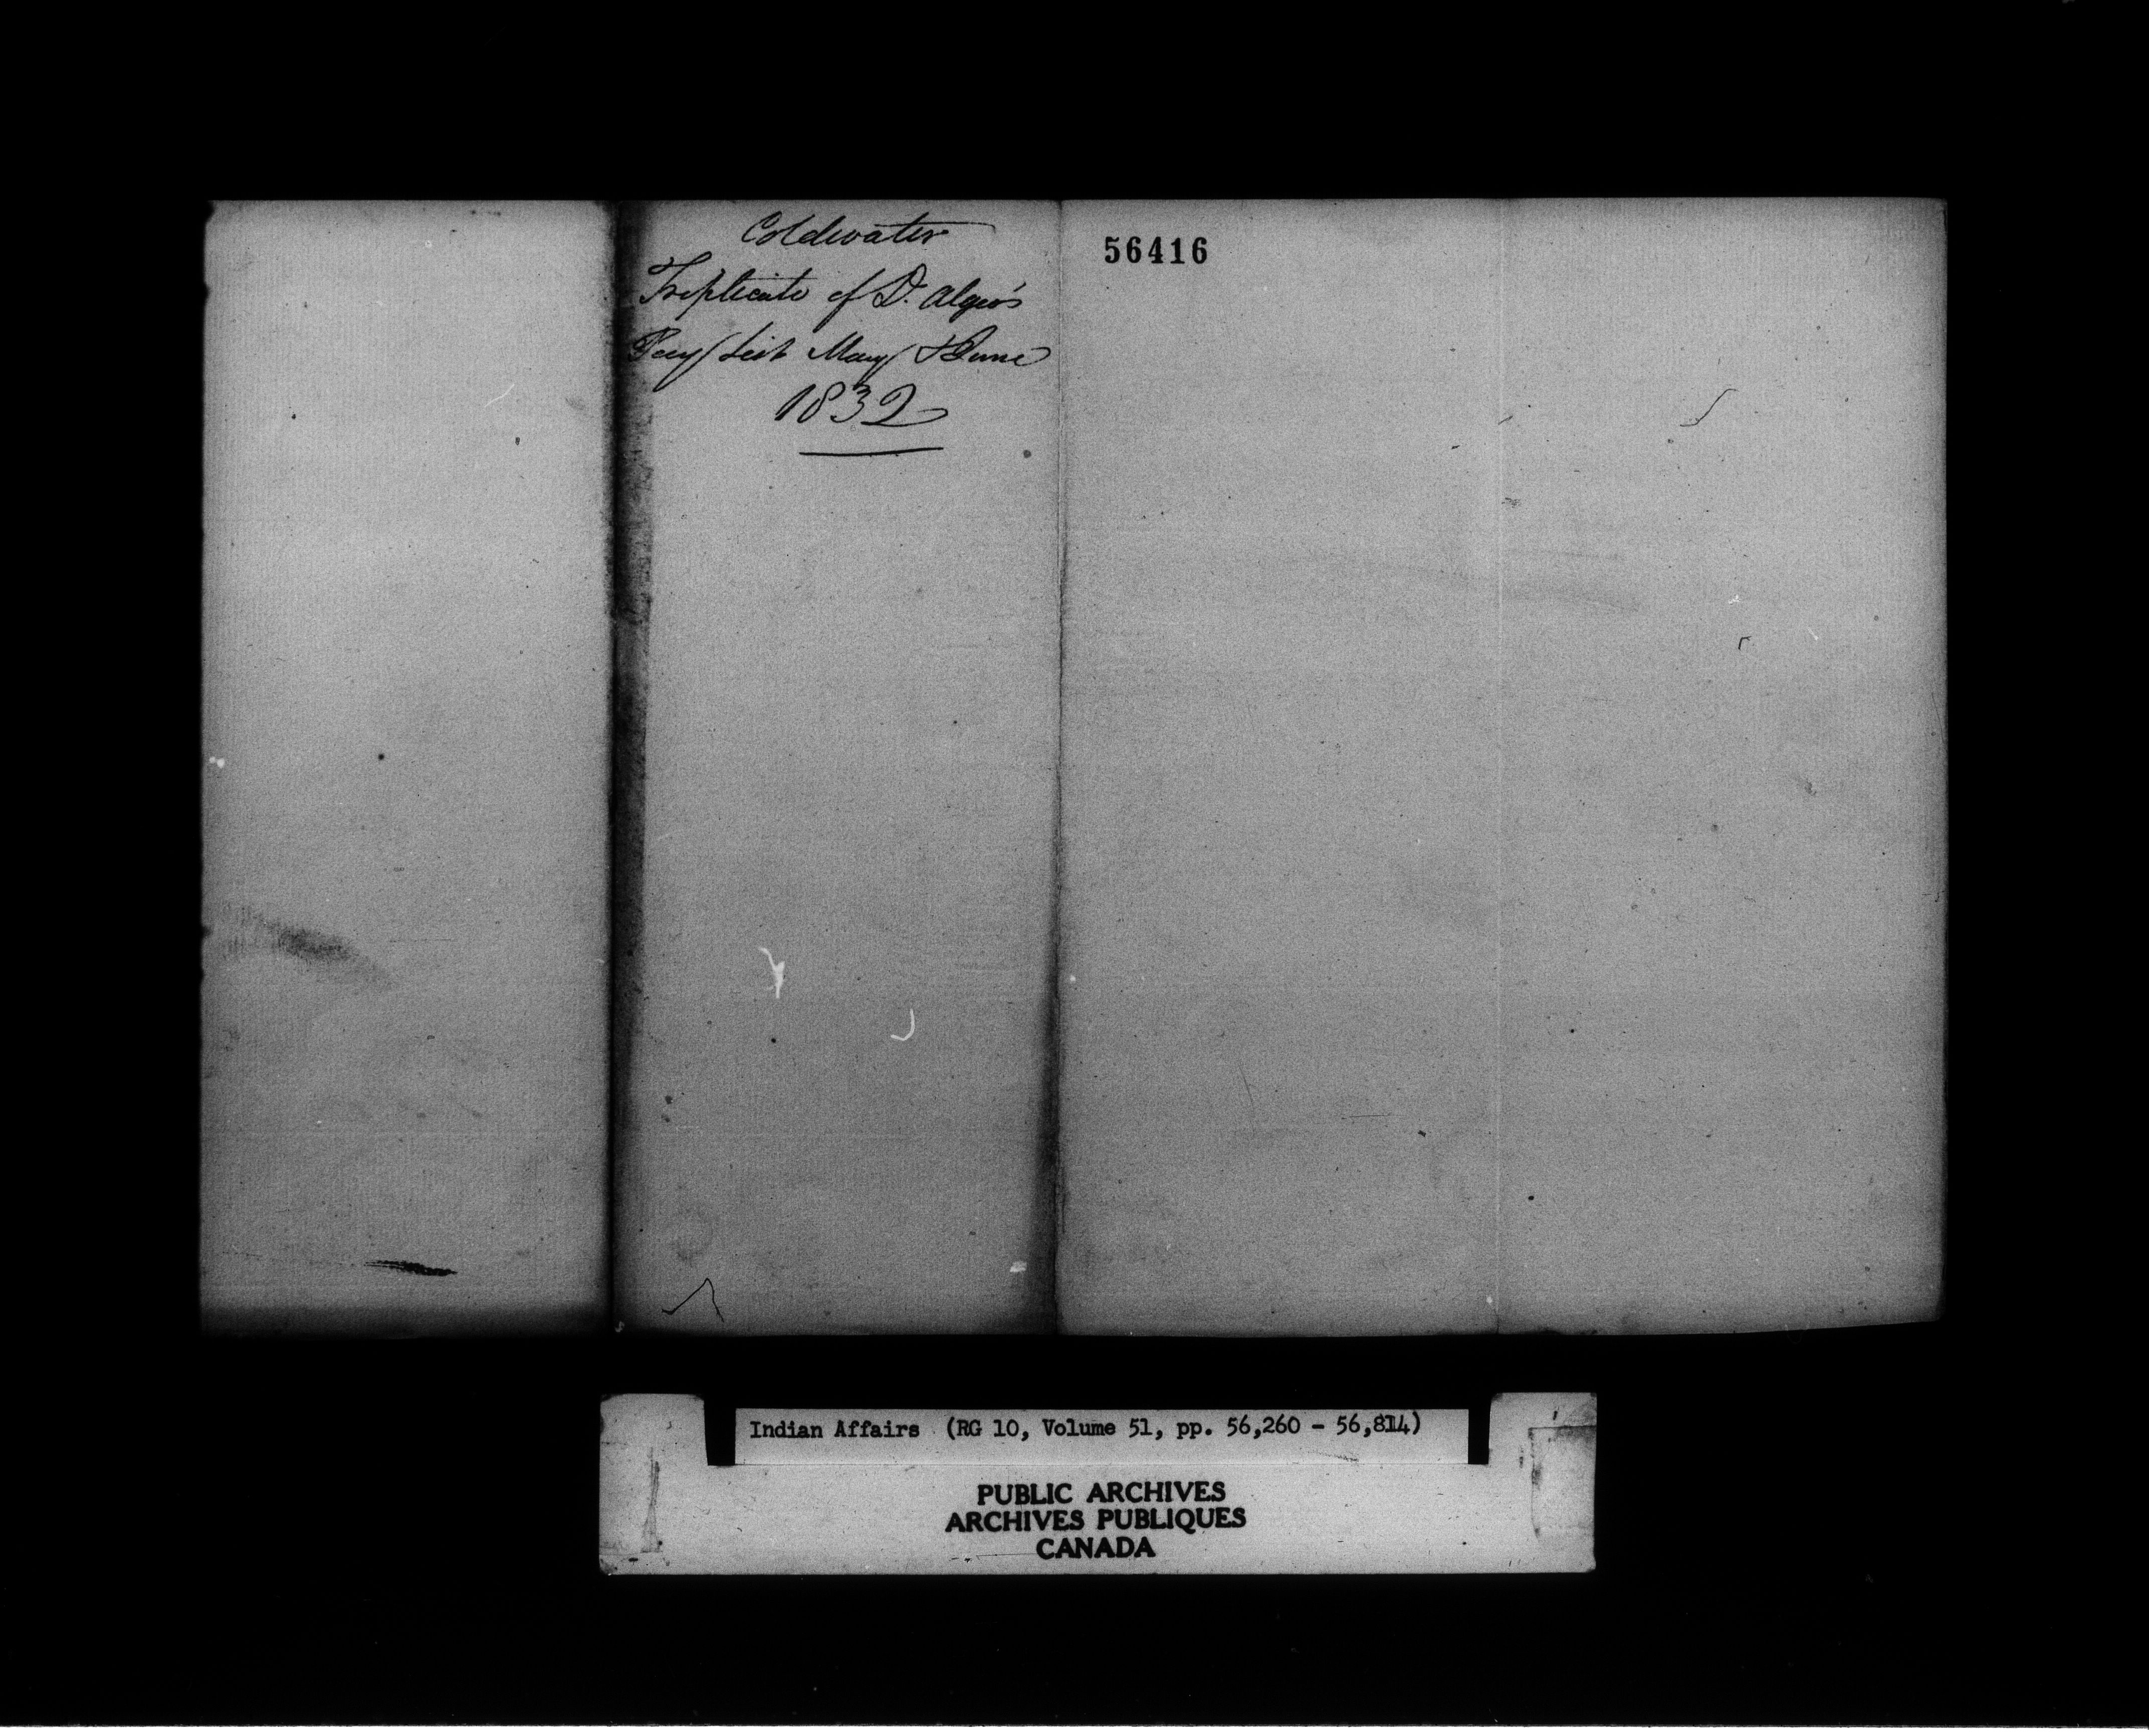 Coldwater
Triplicate of D. Algeo's
Pay List May & June
1832
56416
Indian Affairs (RG 10, Volume 51, pp. 56,260 - 56,814)
PUBLIC ARCHIVES
ARCHIVES PUBLIQUES
CANADA